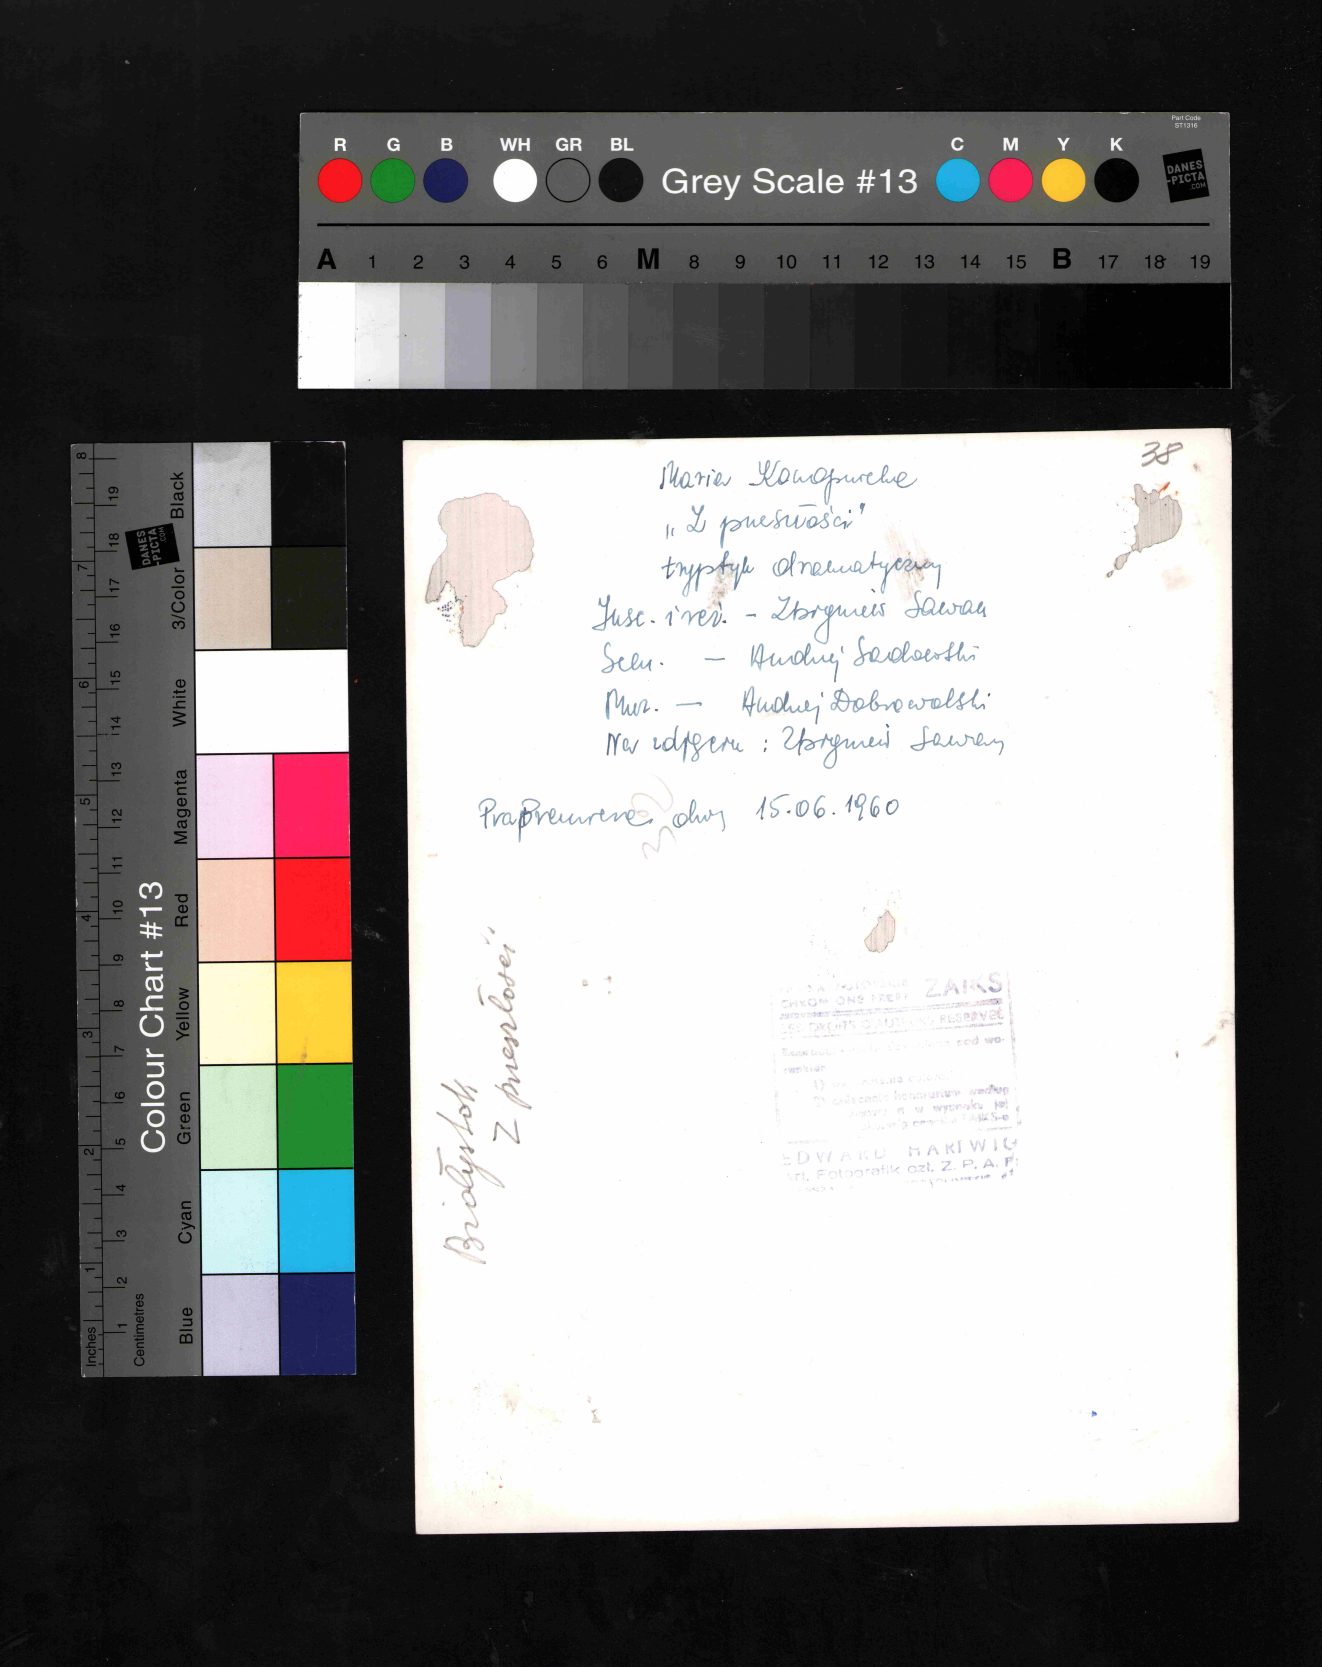 Part Code
ST1316
R G B WH GR BL Grey Scale #13 C M Y K
DANES
-PICTA
.COM
A 1 2 3 4 5 6 M 8 9 10 11 12 13 14 15 B 17 18 19
Colour Chart #13
Blue Cyan Green Yellow Red Magenta White 3/Color Black
DANES
-PICTA
.COM
Inches 1 2 3 4 5 6 7 8
Centimetres 1 2 3 4 5 6 7 8 9 10 11 12 13 14 15 16 17 18 19
38
Maria Konopnicka
„Z przeszłości”
tryptyk dramatyczny
Insc. i reż. - Zbigniew Sawan
Scen. — Andrzej Sadowski
Muz. — Andrzej Dobrowolski
Na zdjęciu : Zbigniew Sawan
Prapremiera dnia 15.06.1960
Białystok
Z przeszłości"
ZAIKS
EDWARD HARTWIG
Art. Fotografik czł. Z. P. A. F.